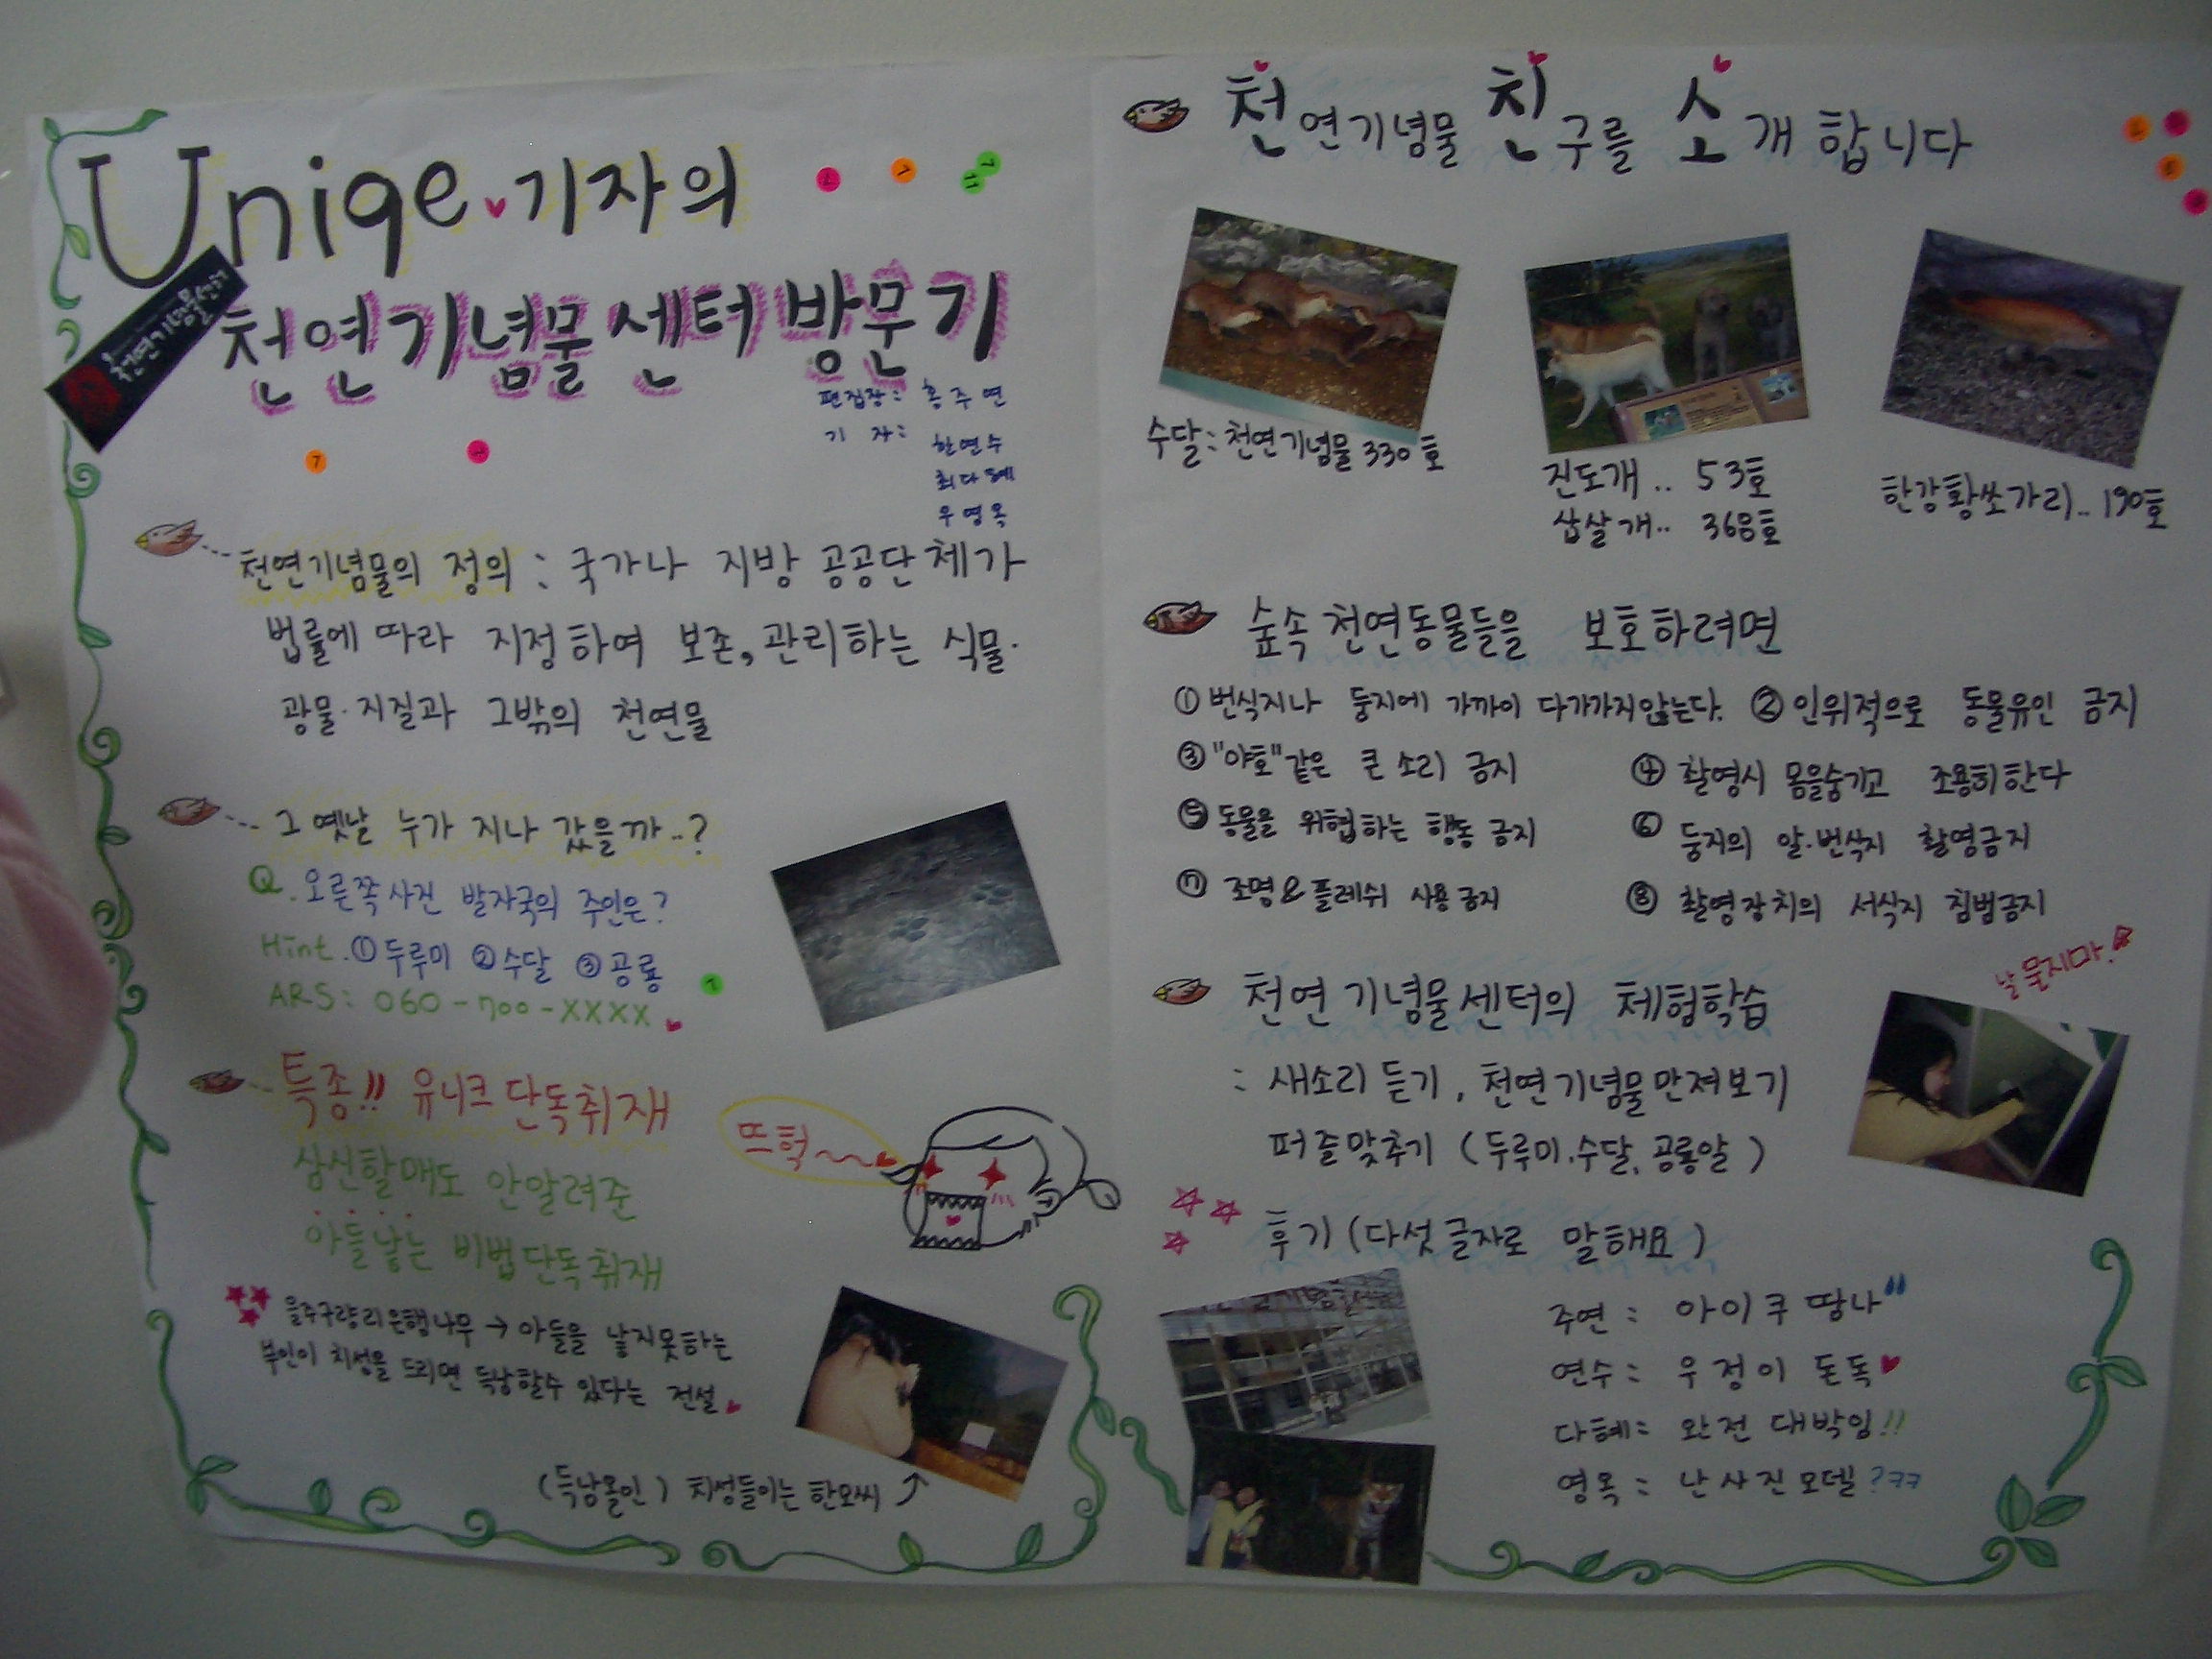 Uniqe 기자의
천연기념물센터 방문기
천연기념물센터
편집장: 홍주연
기자:
한연수
최다혜
우영옥
천연기념물의 정의 : 국가나 지방 공공단체가
법률에 따라 지정하여 보존, 관리하는 식물·
광물·지질과 그밖의 천연물
그 옛날 누가 지나 갔을까..?
Q. 오른쪽 사진 발자국의 주인은?
Hint. ① 두루미 ② 수달 ③ 공룡
ARS: 060-700-XXXX
특종!! 유니크 단독취재
삼신할매도 안알려준
아들낳는 비법단독취재
뜨헉~~
울주구량리은행나무 → 아들을 낳지못하는
부인이 치성을 드리면 득남할수 있다는 전설
(득남올인) 치성들이는 한모씨
천연기념물 친구를 소개합니다
수달: 천연기념물 330호
진도개.. 53호
삽살개.. 368호
한강황쏘가리.. 190호
숲속 천연동물들을 보호하려면
① 번식지나 둥지에 가까이 다가가지않는다. ② 인위적으로 동물유인 금지
③ "야호"같은 큰 소리 금지 ④ 촬영시 몸을숨기고 조용히한다
⑤ 동물을 위협하는 행동 금지 ⑥ 둥지의 알·번식지 촬영금지
⑦ 조명&플레쉬 사용금지 ⑧ 촬영장치의 서식지 침범금지
천연기념물센터의 체험학습
날 물지마!
: 새소리 듣기, 천연기념물만져보기
퍼즐맞추기 (두루미.수달, 공룡알)
후기 (다섯글자로 말해요)
주연 : 아이쿠 땅나
연수: 우정이 돈독
다혜: 완전 대박잉!!
영옥: 난 사진모델?ㅋㅋ